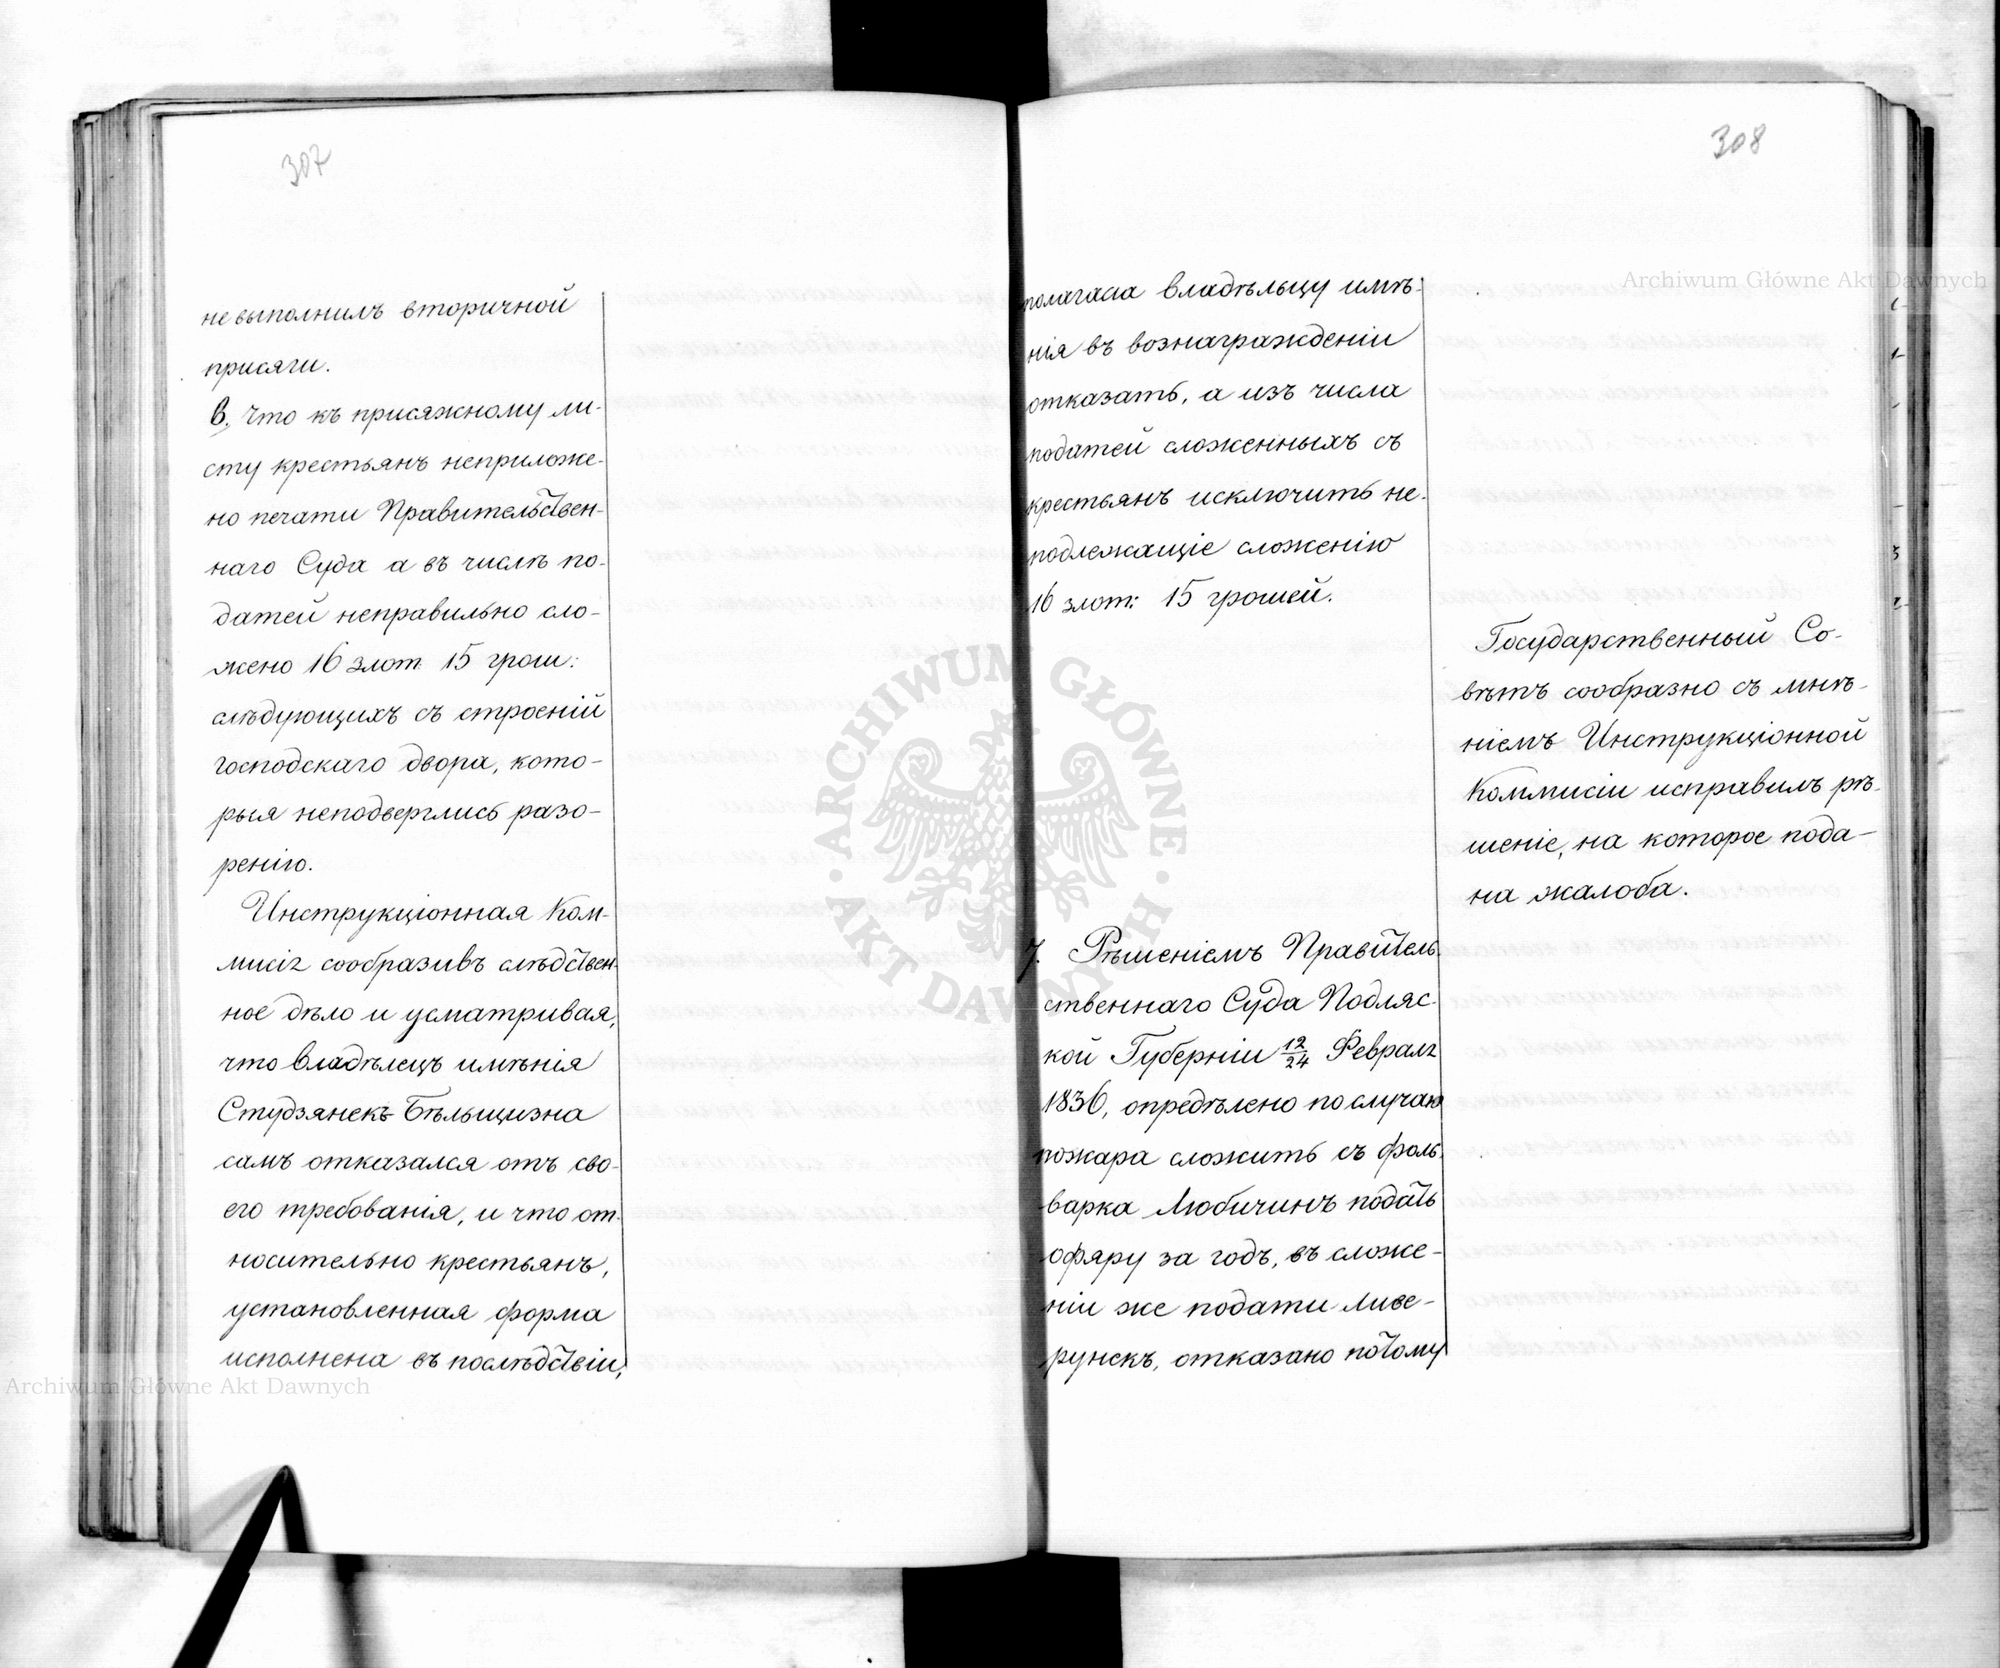 307
не выполнилъ вторичной
присяги.
в, что къ присяжному ли-
сту крестьянъ неприложе-
но печати Правительствен-
наго Суда а въ числѣ по-
датей неправильно сло-
жено 16 злот. 15 грош:
слѣдующихъ съ строеній
господскаго двора, кото-
рыя неподверглись разо-
ренію.
Инструкціонная Ком-
мисія сообразивъ слѣдствен-
ное дѣло и усматривая,
что владѣлецъ имѣнія
Студзянекъ Бѣльщизна
самъ отказался отъ сво-
его требованія, и что от-
носительно крестьянъ,
установленная форма
исполнена въ послѣдствіи,
308
полагала владѣльцу имѣ-
нія въ вознагражденіи
отказать, а изъ числа
податей сложенныхъ съ
крестьянъ исключить не-
подлежащіе сложенію
16 злот: 15 грошей.
Государственный Со-
вѣтъ сообразно съ мнѣ-
ніемъ Инструкціонной
Коммисіи исправилъ рѣ-
шеніе, на которое пода-
на жалоба.
7. Рѣшеніемъ Правитель-
ственнаго Суда Подляс-
кой Губерніи 12/24 Февраля
1836, опредѣлено по случаю
пожара сложить съ фоль-
варка Любичинъ подать
офяру за годъ, въ сложе-
ніи же подати ливе-
рунекъ, отказано потому
Archiwum Główne Akt Dawnych
ARCHIWUM GŁÓWNE · AKT DAWNYCH ·
Archiwum Główne Akt Dawnych